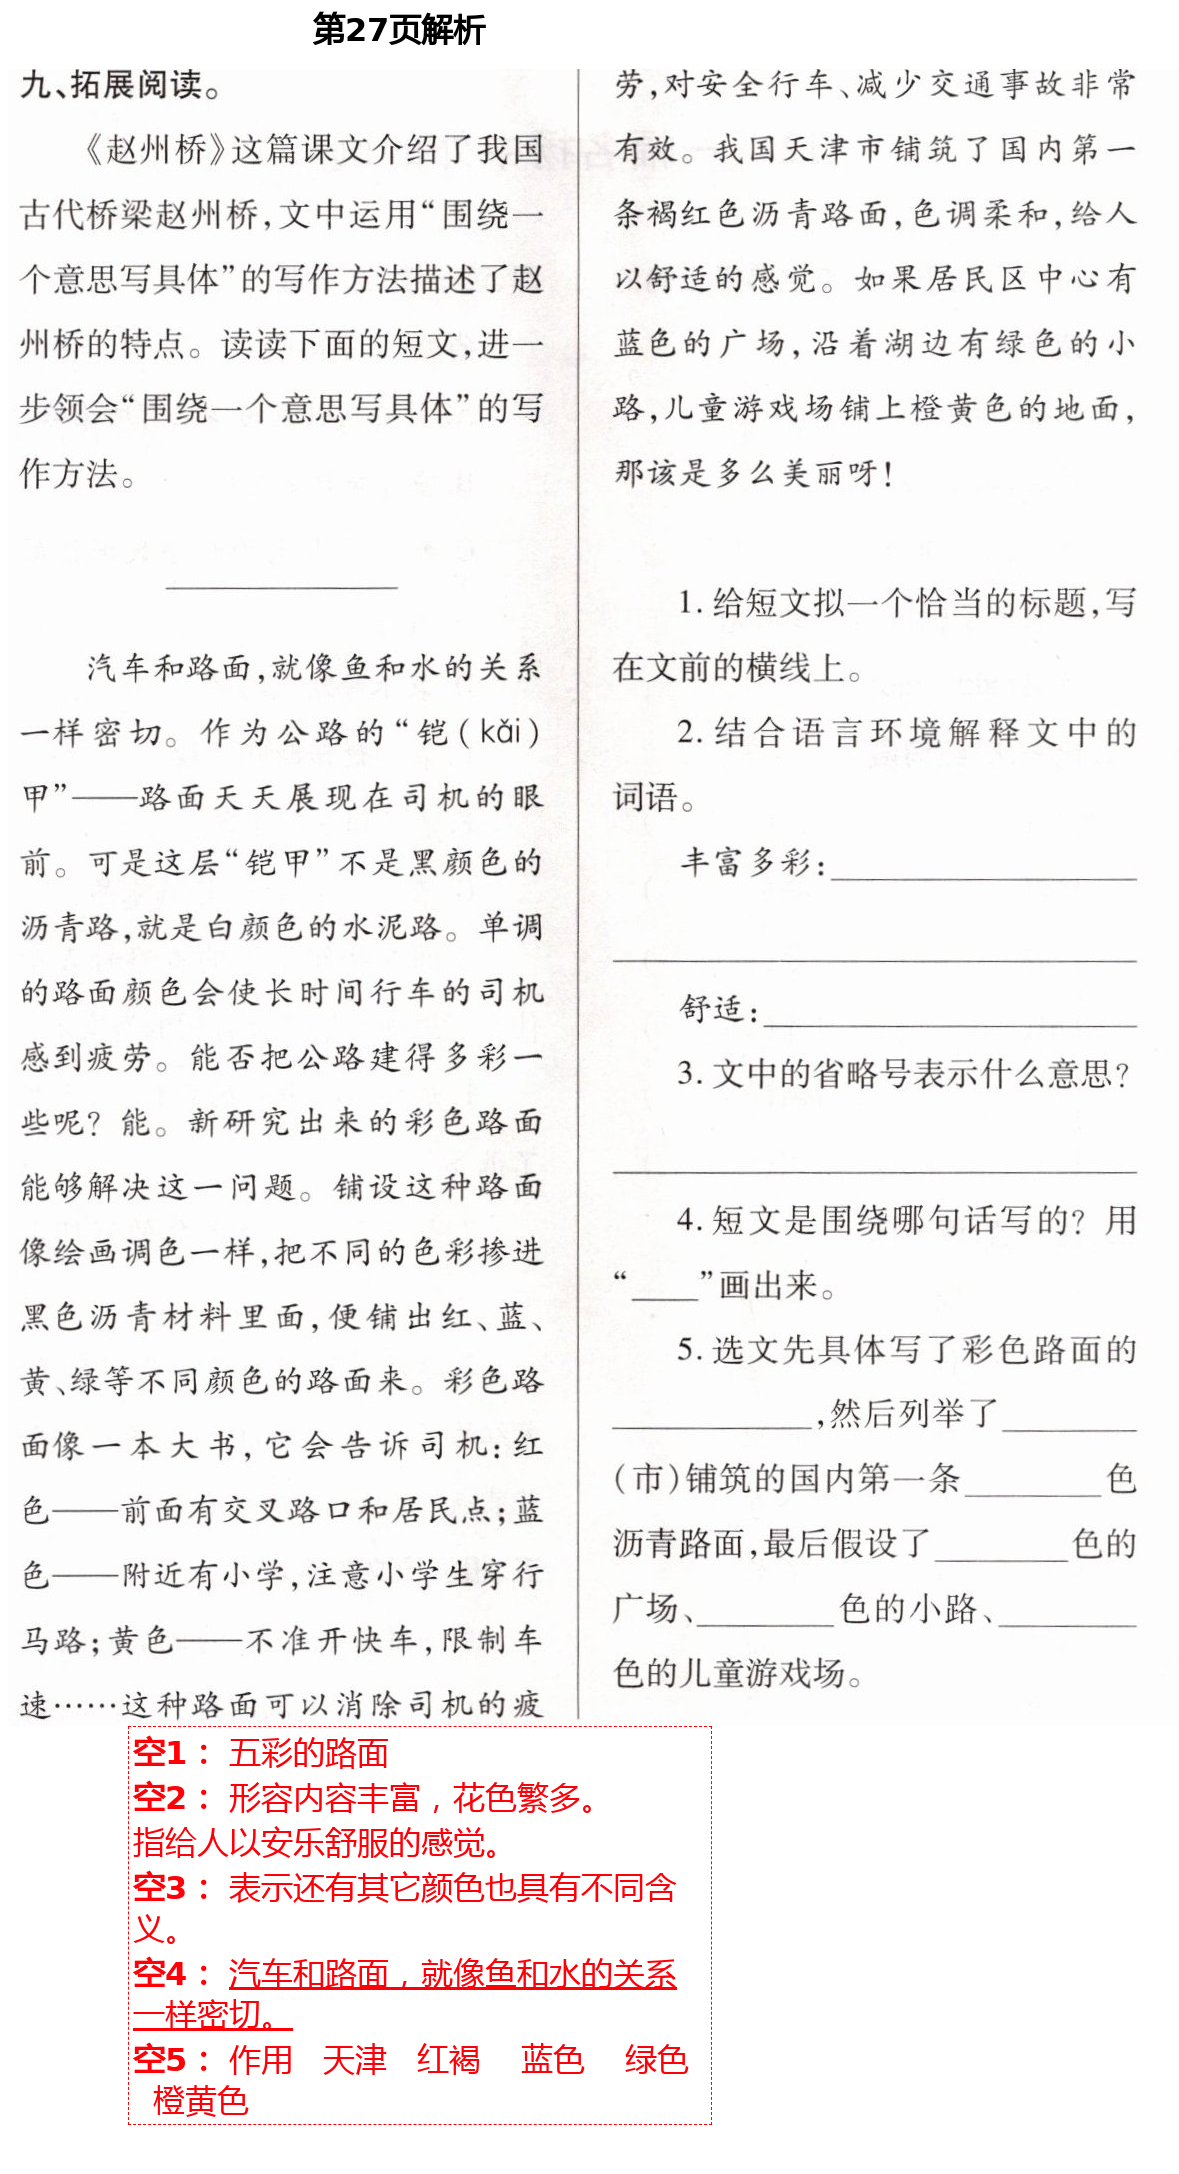 第27页解析
九、拓展阅读。
《赵州桥》这篇课文介绍了我国
古代桥梁赵州桥,文中运用“围绕一
个意思写具体”的写作方法描述了赵
州桥的特点。读读下面的短文,进一
步领会“围绕一个意思写具体”的写
作方法。
汽车和路面,就像鱼和水的关系
一样密切。作为公路的“铠(kǎi)
甲”——路面天天展现在司机的眼
前。可是这层“铠甲”不是黑颜色的
沥青路,就是白颜色的水泥路。单调
的路面颜色会使长时间行车的司机
感到疲劳。能否把公路建得多彩一
些呢?能。新研究出来的彩色路面
能够解决这一问题。铺设这种路面
像绘画调色一样,把不同的色彩掺进
黑色沥青材料里面,便铺出红、蓝、
黄、绿等不同颜色的路面来。彩色路
面像一本大书,它会告诉司机:红
色——前面有交叉路口和居民点;蓝
色——附近有小学,注意小学生穿行
马路;黄色——不准开快车,限制车
速……这种路面可以消除司机的疲
劳,对安全行车、减少交通事故非常
有效。我国天津市铺筑了国内第一
条褐红色沥青路面,色调柔和,给人
以舒适的感觉。如果居民区中心有
蓝色的广场,沿着湖边有绿色的小
路,儿童游戏场铺上橙黄色的地面,
那该是多么美丽呀!
1. 给短文拟一个恰当的标题,写
在文前的横线上。
2. 结合语言环境解释文中的
词语。
丰富多彩:
舒适:
3. 文中的省略号表示什么意思?
4. 短文是围绕哪句话写的?用
“____”画出来。
5. 选文先具体写了彩色路面的
____________,然后列举了________
(市)铺筑的国内第一条________色
沥青路面,最后假设了________色的
广场、________色的小路、________
色的儿童游戏场。
空1：五彩的路面
空2：形容内容丰富，花色繁多。
指给人以安乐舒服的感觉。
空3：表示还有其它颜色也具有不同含
义。
空4：汽车和路面，就像鱼和水的关系
一样密切。
空5：作用 天津 红褐 蓝色 绿色
橙黄色